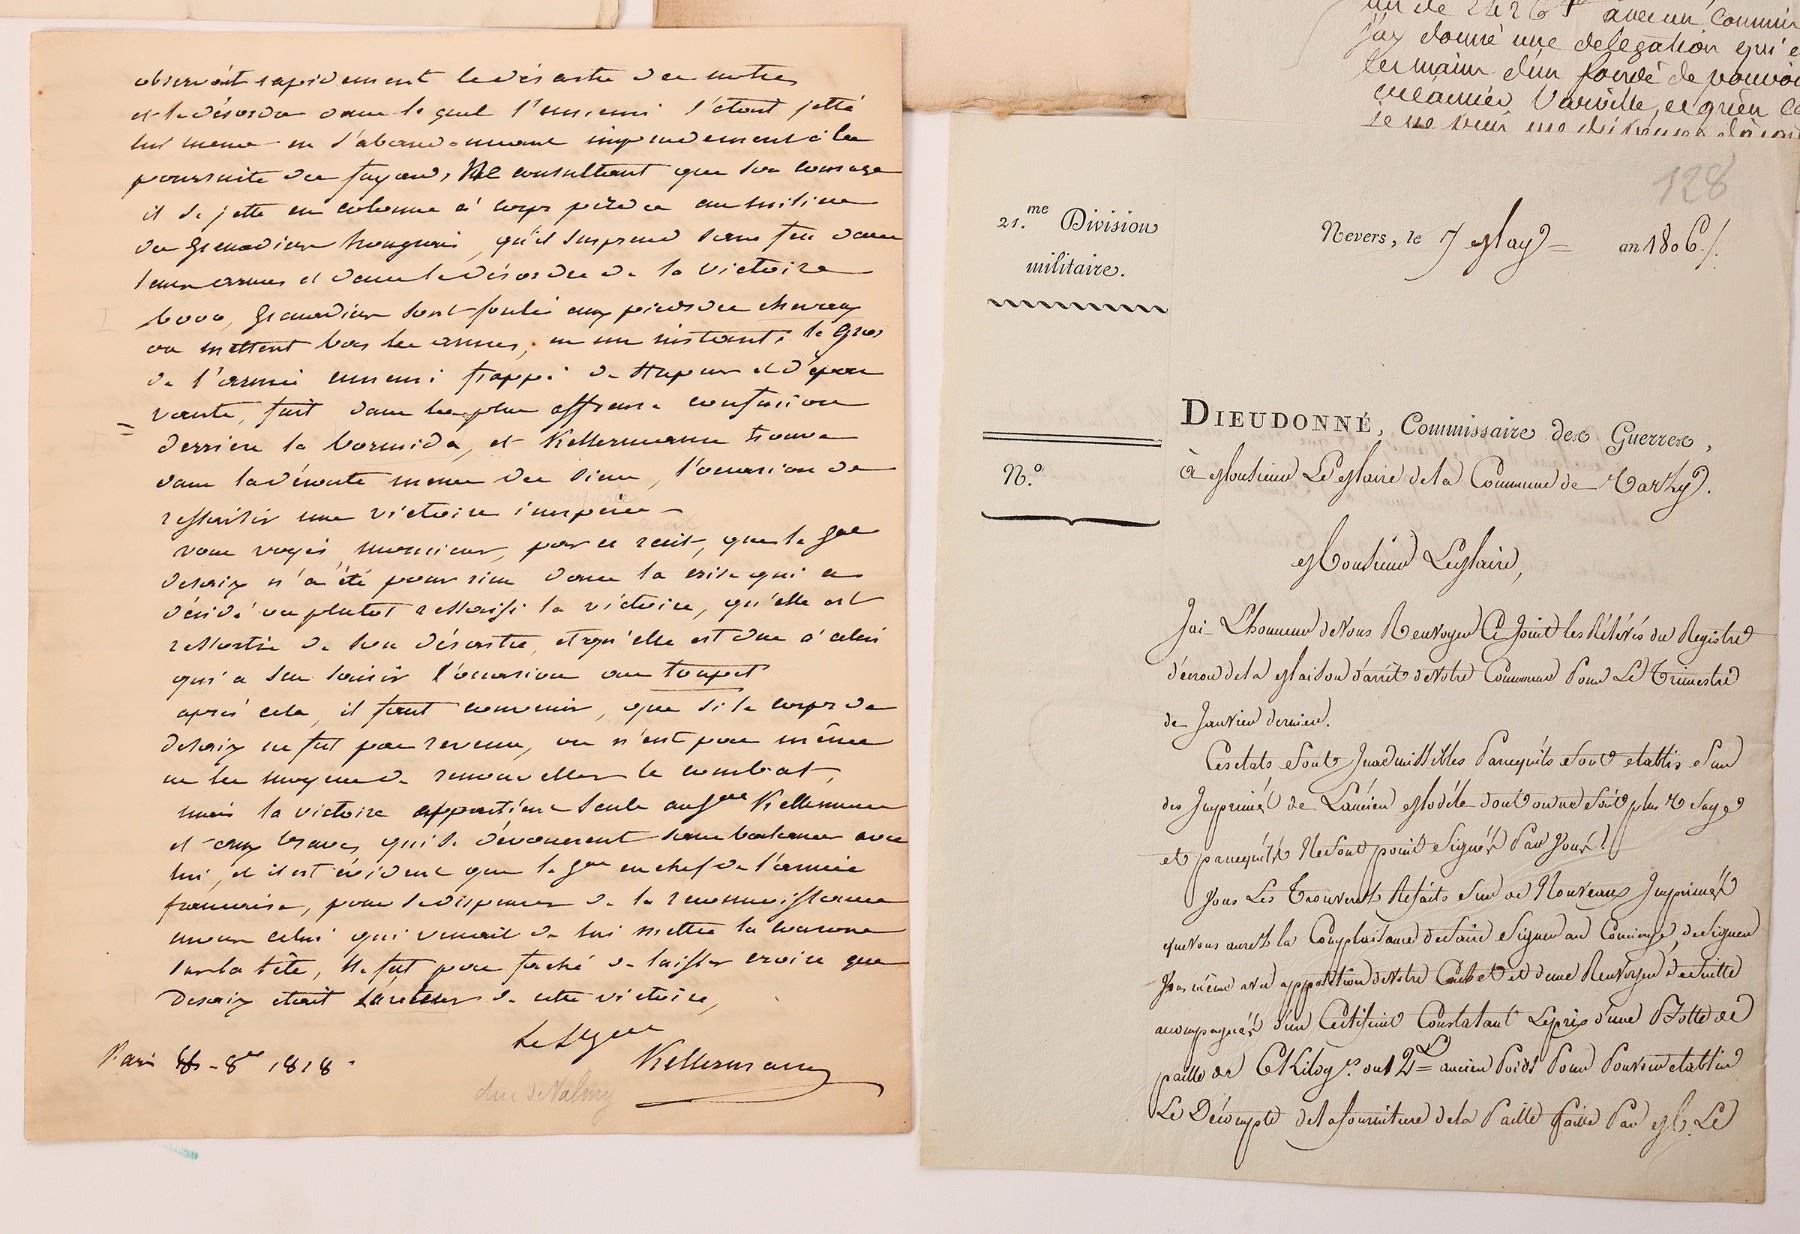 observoit rapidement le désastre des notres
et le désordre dans lequel l'ennemi s'étoit jetté
lui meme en s'abandonnant imprudemment à la
poursuite des fuyards, Ne consultant que son courage
il se jette en colonne à corps perdu au milieu
des Grenadiers hongrois, qu'il surprend sans feu dans
leurs armes et dans le désordre de la victoire
6000, Grenadiers sont foulés aux pieds des chevaux
ou mettent bas les armes, en un instant, le gros
de l'armée ennemi frappé de stupeur et d'épou
vante, fuit dans la plus affreuse confusion
derriere la bormida, et Kellermann trouve
dans la déroute meme des siens, l'occasion de
ressaisir une victoire inespérée
vous voyés, monsieur, par ce récit, que le gal
desaix n'a été pour rien dans la crise qui a
décidé ou plutot ressaisi la victoire, qu'elle est
ressortie de son désastre, et qu'elle est due à celui
qui a su saisir l'occasion au toupet
après cela, il faut convenir, que si le corps de
desaix ne fut pas revenu, on n'eut pas même
eu les moyens de renouveller le combat,
mais la victoire appartient seule au gal Kellermann
et aux braves qui se dévouerent sans balancer avec
lui, et il est évident que le gal en chef de l'armée
francaise, pour se dispenser de la reconnoissance
envers celui qui venait de lui mettre la couronne
sur la tête, Ne fut pas faché de laisser croire que
Desaix étoit l'auteur de cette victoire,
Le Lt gal
Kellermann
duc de Valmy
Paris 8bre 1818.
un de 2426 avec un
j'ay donné une délégation qui
les mains d'un fondé de pouvoir
128
21.me Division
militaire.
N.o
Nevers, le 7 May = an 1806./.
DIEUDONNÉ, Commissaire des Guerres,
à Monsieur Le Maire de la Commune de Varzy.
Monsieur Le Maire,
Jai L'honneur de Vous Renvoyer Ci Joint les Rélévés du Registre
d'écrou de la Maison d'arrêt de Votre Commune Pour Le Trimestre
de Janvier dernier.
Ces etats Sont Inadmissibles Parcequils Sont etablis Sur
des Imprimés de L'ancien Modéle dont on ne fait plus Usage
et parcequils Ne Sont point Signés Par Vous.
Vous Les Trouverez Refaits Sur de Nouveaux Imprimés
que vous aurez la Complaisance de faire Signer au Concierge, de Signer
Vous même avec apposition de Votre Cachet et de me Renvoyer de Suitte
accompagnés d'un Certificat Constatant Le prix d'une Botte de
paille de 6 Kilog.s ou 12 ancien Poids Pour Pouvoir etablir
Le Décompte de la fourniture de la Paille faite Par M. Le